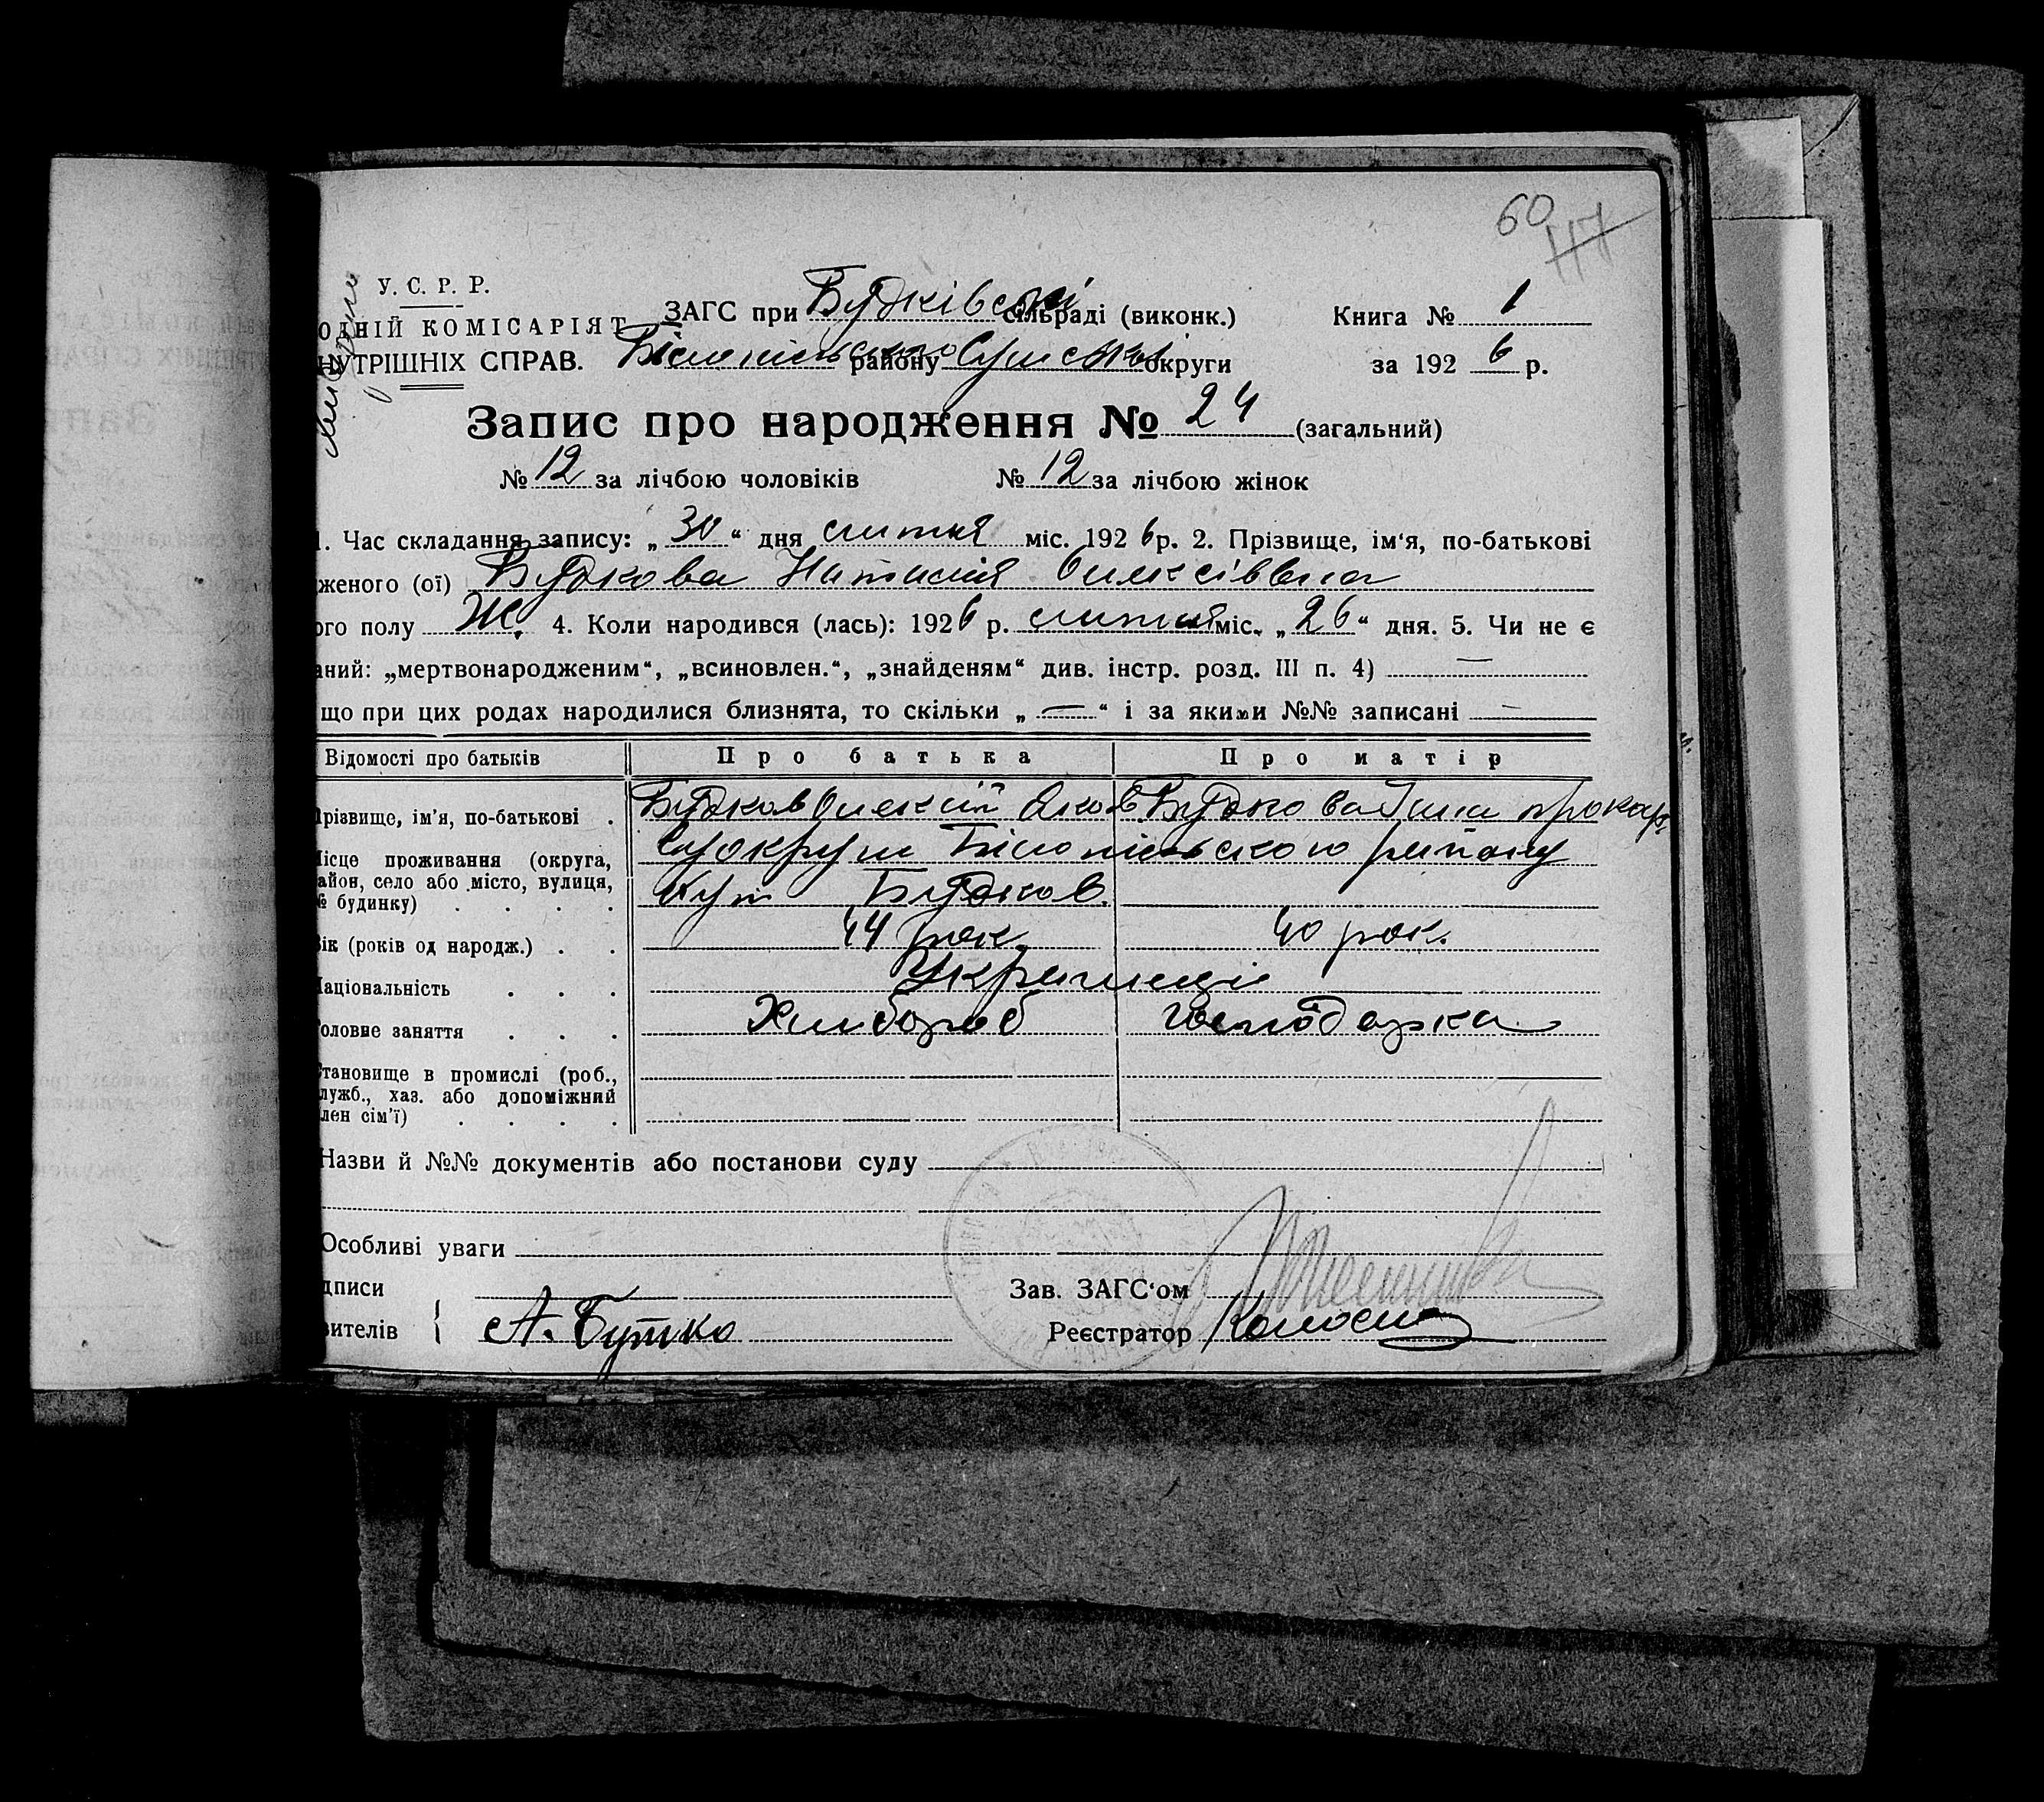 60
117
У. С. Р. Р.
ОДНІЙ КОМІСАРІЯТ
НУТРІШНІХ СПРАВ.
ЗАГС при Будківській сільраді (виконк.)
Білопільського району Сумської округи
Книга № 1
за 1926 р.
Запис про народження № 24 (загальний)
№ 12 за лічбою чоловіків № 12 за лічбою жінок
1. Час складання запису: „30“ дня липня міс. 1926 р. 2. Прізвище, ім‘я, по-батькові
женого (ої) Будкова Наталія Олексіївна
ого полу Ж. 4. Коли народився (лась): 1926 р. липня міс. „26“ дня. 5. Чи не є
аний: „мертвонародженим“, „всиновлен.“, „знайденям“ див. інстр. розд. III п. 4) —
що при цих родах народилися близнята, то скільки „—“ і за якими №№ записані —
Відомості про батьків Про батька Про матір
Прізвище, ім’я, по-батькові . Будков Олексій Яков Будкова Прокоф.
Місце проживання (округа, район, село або місто, вулиця, № будинку) Сумокруги Білопільського району
хут Будков.
Вік (років од народж.) . . 44 рок. 40 рок.
Національність . . . Українці
Головне заняття . . . Хлібороб Господарка
Становище в промислі (роб.,
служб., хаз. або допоміжний
член сім’ї) . . . .
Назви й №№ документів або постанови суду
Особливі уваги
дписи Зав. ЗАГС‘ом
вителів { А. Бутко Реєстратор